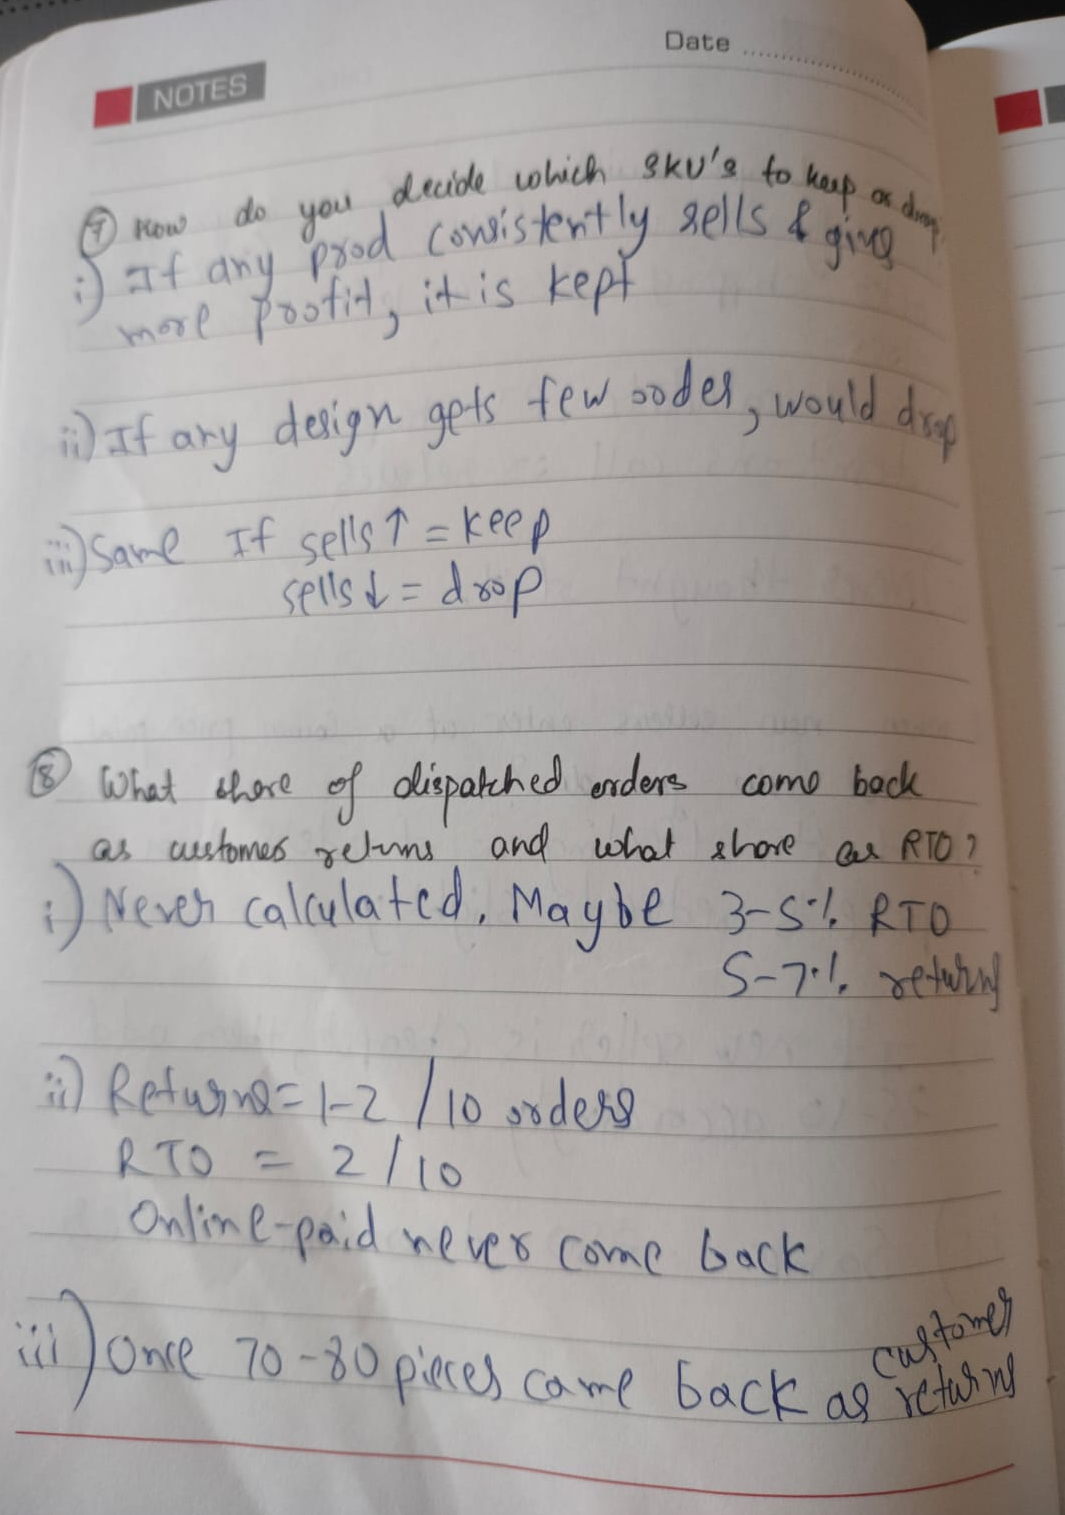 Date
NOTES
7 How do you decide which SKU's to keep or drop.
i) If any prod consistently sells & giving
more profit, it is kept
ii) If any design gets few order, would drop
iii) Same If sells ↑ = keep
sells ↓ = drop
8 What share of dispatched orders come back
as customer returns and what share as RTO?
i) Never calculated. Maybe 3-5% RTO
5-7% returns
ii) Returns = 1-2 / 10 orders
RTO = 2/10
Online-paid never come back
iii) Once 70-80 pieces came back as customer returns